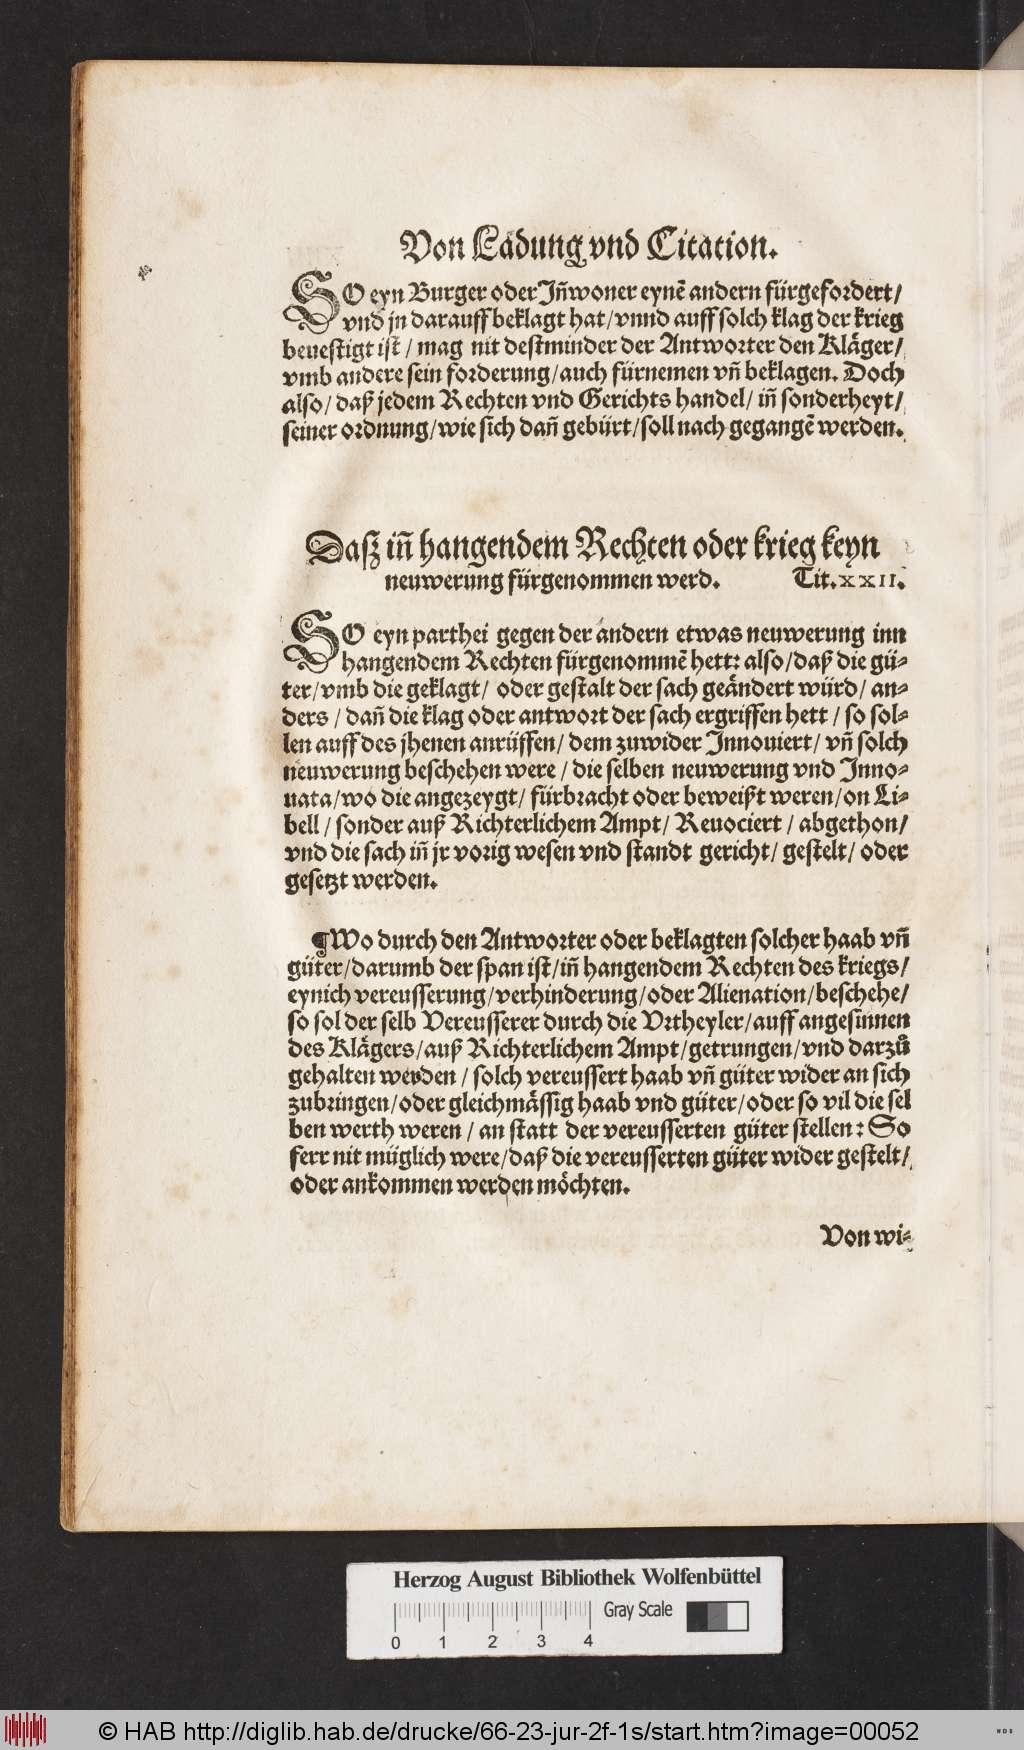 Von Ladung vnd Citation.
SO eyn Burger oder Jn̄woner eynē andern fürgefordert/
vnd jn darauff beklagt hat/vnnd auff solch klag der krieg
beuestigt ist/ mag nit destminder der Antworter den Klåger/
vmb andere sein forderung/auch fürnemen vn̄ beklagen. Doch
also/ daß jedem Rechten vnd Gerichts handel/ in̄ sonderheyt/
seiner ordnung/wie sich dan̄ gebürt/soll nach gegangē werden.
Dasz in̄ hangendem Rechten oder krieg keyn
neuwerung fürgenommen werd. Tit.XXII.
SO eyn parthei gegen der andern etwas neuwerung inn
hangendem Rechten fürgenommē hett: also/daß die gü⸗
ter/vmb die geklagt/ oder gestalt der sach geåndert würd/ an⸗
ders/ dan̄ die klag oder antwort der sach ergriffen hett/ so sol⸗
len auff des jhenen anrüffen/ dem zuwider Jnnouiert/ vn̄ solch
neuwerung beschehen were/ die selben neuwerung vnd Jnno⸗
uata/wo die angezeygt/ fürbracht oder beweißt weren/on Li⸗
bell/ sonder auß Richterlichem Ampt/ Reuociert/ abgethon/
vnd die sach in̄ jr vorig wesen vnd standt gericht/ gestelt/ oder
gesetzt werden.
¶Wo durch den Antworter oder beklagten solcher haab vn̄
güter/darumb der span ist/in̄ hangendem Rechten des kriegs/
eynich vereusserung/verhinderung/oder Alienation/beschehe/
so sol der selb Vereusserer durch die Vrtheyler/auff angesinnen
des Klågers/auß Richterlichem Ampt/getrungen/vnd darzů
gehalten werden/ solch vereussert haab vn̄ güter wider an sich
zubringen/oder gleichmåssig haab vnd güter/oder so vil die sel
ben werth weren/ an statt der vereusserten güter stellen: So
ferr nit müglich were/daß die vereusserten güter wider gestelt/
oder ankommen werden möchten.
Von wi⸗
Herzog August Bibliothek Wolfenbüttel
Gray Scale
0 1 2 3 4
© HAB http://diglib.hab.de/drucke/66-23-jur-2f-1s/start.htm?image=00052
WDB